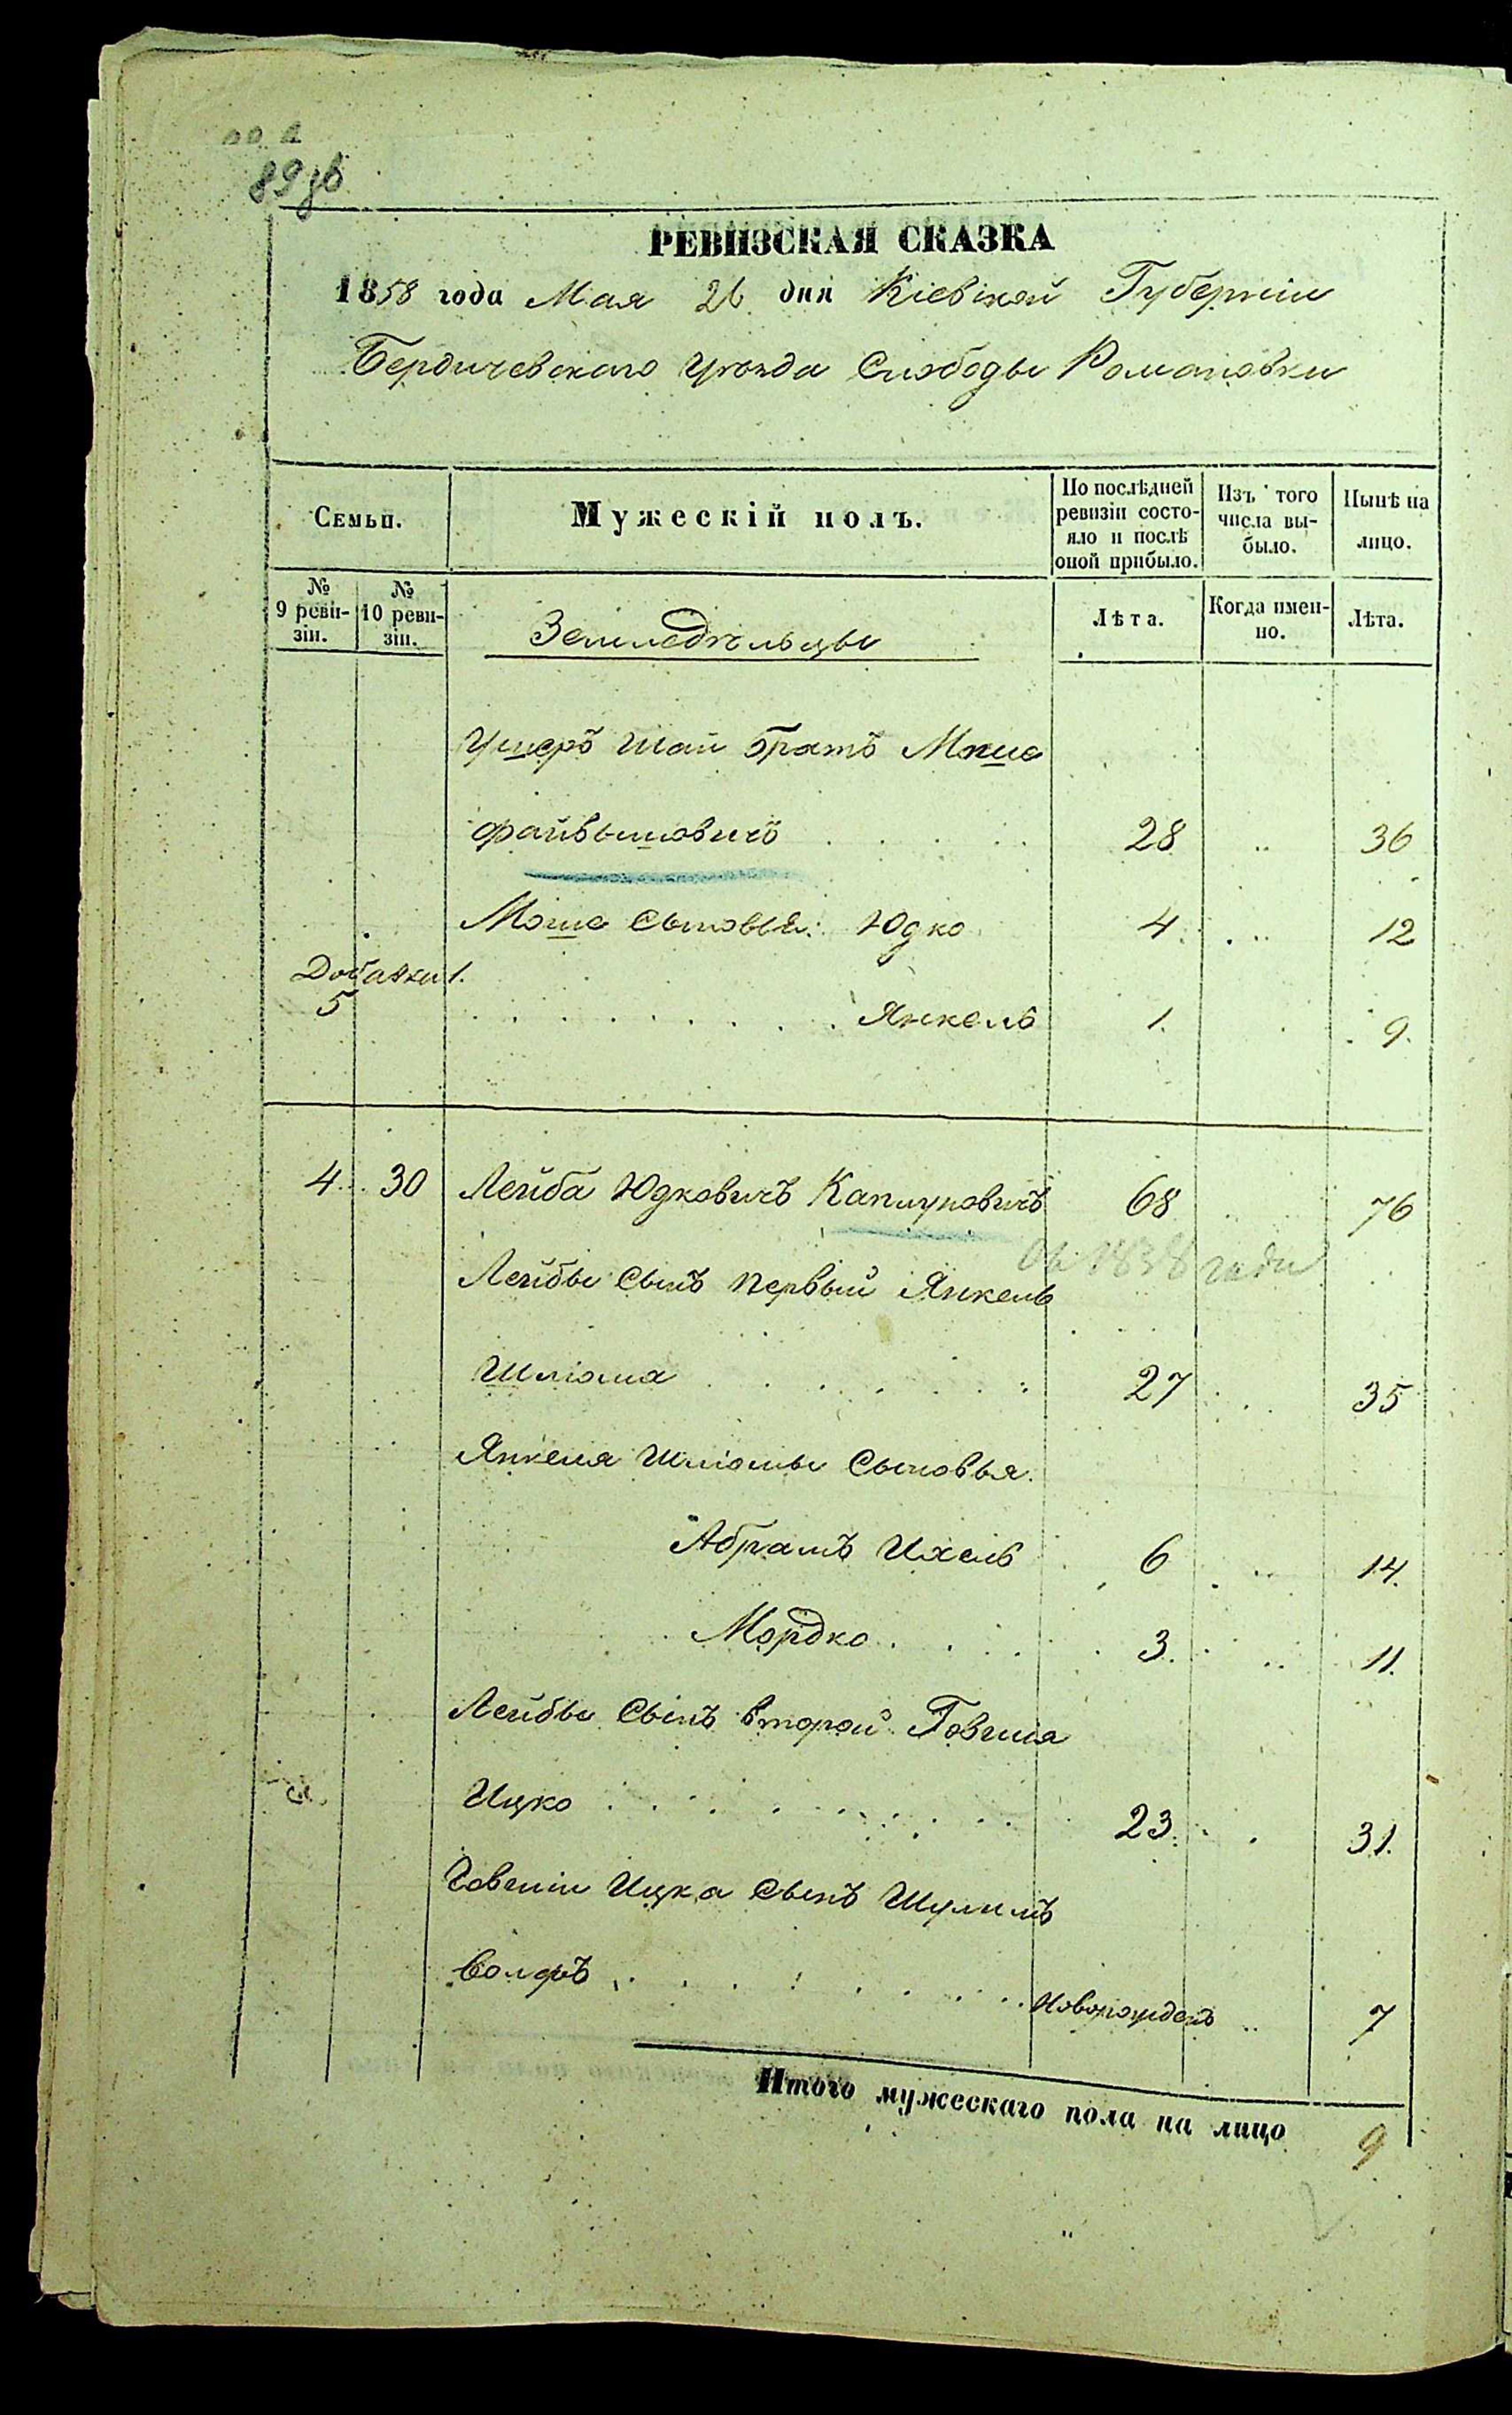 89 об
РЕВИЗСКАЯ СКАЗКА
1858 года Мая 26 дня Кіевской Губерніи
Бердичевскаго Уѣзда Слободы Романовки
Семьи. Мужескій полъ. По послѣдней ревизіи состояло и послѣ оной прибыло. Изъ того числа выбыло. Нынѣ на лицо.
№ 9 ревизіи. № 10 ревизіи. Земледѣльцы Лѣта. Когда именно. Лѣта.
Ушеръ Шаи братъ Мошко
Файвышовичъ 28 36
Мошка Сыновья: Юдко 4. 12
Добавки 1.
5 Янкель 1. 9.
4. 30 Лейба Юдковичъ Каплуновичъ 68 76
1838 года
Лейбы Сынъ первый Янкель
Шліома 27 35
Янкеля Шліомы Сыновья.
Абрамъ Ихель 6 14.
Мордко 3. 11.
Лейбы Сынъ второй Говшія
Ицко 23. 31.
Говшіи Ицка Сынъ Шулимъ
Волфъ Новорожденъ 7
Итого мужескаго пола на лицо 9